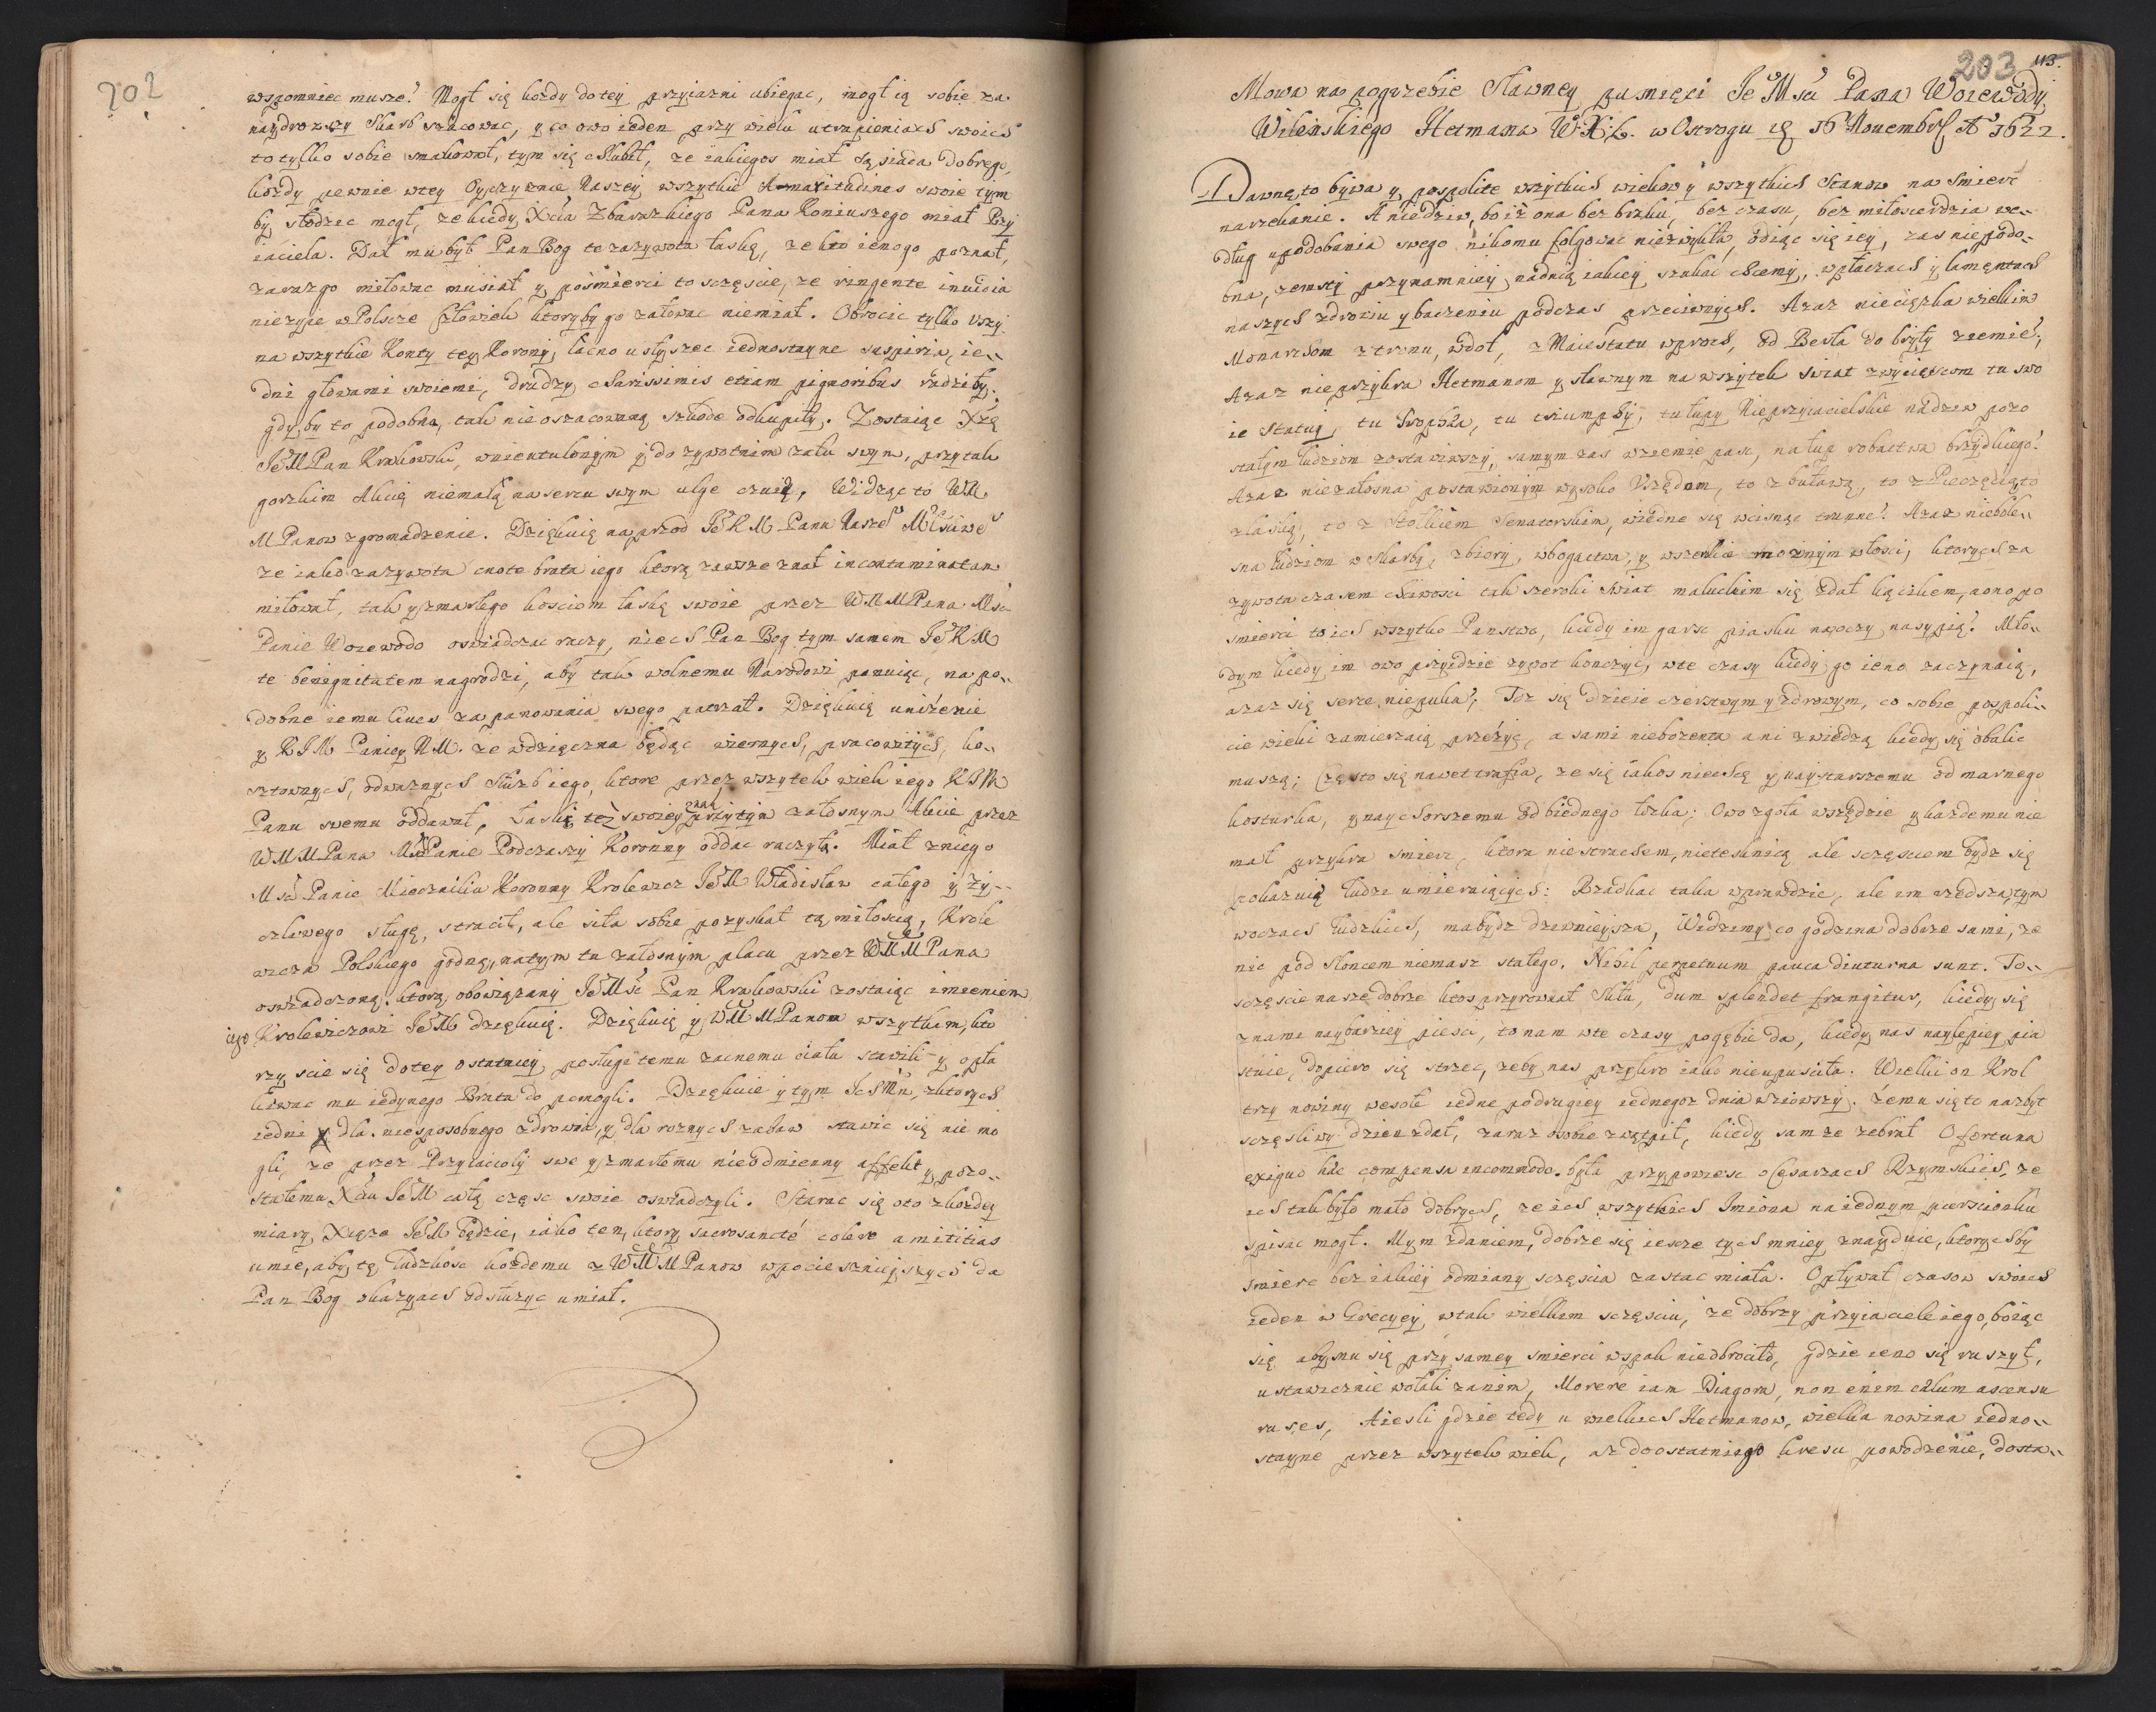 202
wspomniec musze? Mogł się kozdy do tey przyiazni ubiegac, mogł ią sobie za
naydrozszy skarb szacowac, y co owo ieden przy wielu utrapieniach swoich
to tylko sobie smakował, tym się chlubił, ze iakiegos miał Sąsiada dobrego,
kozdy pewnie wtey Oyczyznie Naszey wszytkie Amaritudines swoie tym
by słodzic mogł, ze kiedy Xcia Zbaraskiego Pana Koniuszego miał Przy
iaciela. Dał mu był Pan Bog te za zywota łaskę, ze kto ienogo poznał,
zarazgo miłowac musiał y pośmierci to sczęscie, ze ringente inuidia
niezyie w Polscze człowiek ktoryby go załowac niemiał. Obrocic tylko Uszy
na wszytkie Konty tey Korony, łacno usłyszec iednostayne suspiria, ie„
dni głowami swoiemi, drudzy charissimis etiam pignoribus radziby
gdy by to podobna, tak nie oszacowaną szkode odkupiły. Zostaiąc Xżę
JeM Pan Krakowski, wnieutulonym y do zywotnim zalu swym, przytak
gorzkim Akcię niemałą na sercu swym ulge czuią, Widząc to WM
M Panow zgromadzenie. Dziękuię naprzod JeKM Panu Nasze M̃Ksciwe
ze iako zazywota cnote brata iego ktorą zawsze znał incontaminatam
miłował, tak y zmarłego kosciom łaskę swoie przez WMM Pana Msc
Panie Woiewodo oswiadczac raczy, niech Pan Bog tym samem JeKM
te benignitatem nagrodzi, aby tak wolnemu Narodowi panuiąc, na po„
dobne iemu Ciues za panowania swego patrzał. Dziękuię uniżenie
y KJM Paniey NM. ze wdzięczna będąc wiernych, pracowitych, ko„
sztownych, odwaznych Słuzb iego, ktore przez wszytek wiek iego KJM
Panu swemu oddawał, Łaski też swoiey znak przytym załosnym Akcie przez
WMM Pana Mśc Panie Podczaszy Koronny oddac raczyła. Miał z niego
Msc Panie Mieczniku Koronny Krolewicz JeM Władisław całego y ży„
czliwego sługę, stracił, ale siła sobie pozyskał tą miłoscią, Krole
wicza Polskiego godną, natym tu załosnym placu przez WMM Pana
oswiadczoną. ktorą obowiązany JeMśc Pan Krakowski zostaiąc imieniem
iego Krolewiczowi JeM dziękuię. Dziękuię y WM MPanom wszytkim, kto
rzy scie się do tey ostatniey posługi temu zacnemu ciału stawili y opła
kiwac mu iedynego Brata do pomogli. Dziękuie y tym JchMm, z ktorych
iedni dla niesposobnego zdrowia, y dla roznych zabaw stawic się nie mo
gli, ze przez Przyiacioly swe y zmarłemu nieodmienny affekt y pozo„
stałemu Xciu JeM całą częsc swoie oswiadczyli. Starac się oto zkozdey
miary Xiąze JeM będzie, iako ten, ktory sacrosancte colere amicitias
umie, aby tę ludzkosc kozdemu z WMM Panow wpocieszniejszych da
Pan Bog okazyach odsłuzyc umiał.
203 113.
Mowa na pogrzebie Sławney pamięci JeMsci Pana Woiewody
Wilenskiego Hetmana W.X.L. w Ostrogu 16 Nouembr A° 1622.
Dawne to bywa y pospolite wszytkich wiekow y wszytkich Stanow na Smierc
narzekanie. A niedziw, bo iż ona bez braku, bez czasu, bez miłosierdzia we„
dług upodobania swego nikomu folgowac niezwykła, odiąc się iey, zas niepodo„
bna, zemsty przynamniey nadnią iakiey szukac chcemy, wpłaczach y lamentach
naszych zdrowiu y baczeniu podczas przeciwnych. Azaz nieciężka wielkim
Monarchom z tronu, wdoł, z Maiestatu wproch, od Berła do bryły ziemie?,
Azaz nieprzykra Hetmanom y sławnym na wszytek swiat zwyciężcom tu swo
ie Statuy, tu Trophæa, tu tryumphy, tu łupy Nieprzyiacielskie nadziw pozo
stałym ludziom zostawiwszy, samym zas wziemie pasc, na łup robactwa brzydkiego?
Azaz niezałosna postawionym wysoko Urzędom, to z buławą, to z Pieczęcią, to
zlaską, to z Stołkiem Senatorskim, wiedne się wcisnąc trunne? Azaz niebole„
sna ludziom w Skarby, zbiory, wbogactwa, y wszenkie moznym włosci, ktorych za
zywota czasem chciwosci tak szeroki swiat maluckim się zdał kączkiem, a ono po
smierci to ich wszytko Panstwo, kiedy im garsc piasku na oczy nasypią? Mło„
dym kiedy im owo przyidzie zywot konczyc, wte czasy kiedy go ieno zaczynaią,
azaz się serce niepuka?, Toz się dzieie czerstwym y zdrowym, co sobie pospoli„
cie wieki zamierzaią przeżyc, a sami niebozenta ani zwiedzą kiedy się obalic
muszą; Często się nawet trafia, ze się iakos niechcę y naystarszemu od marnego
kosturka, y naychorszemu od biednego łozka; Owo zgoła wszędzie y kazdemu nie
mal przykra smierc, ktora nie strachem, nietesknicą ale sczęsciem bydz się
pokazuią ludzi umieraiących: Rzadkac taka wprawdzie, ale im rzedsza, tym
woczach ludzkich, mabydz dziwnieysza, Widzimy co godzina dobrze sami, ze
nic pod słoncem niemasz stałego. Nihil perpetuum pauca diuturna sunt. To„
sczęscie nasze dobrze ktos przyrownał Skłu, dum splendet frangitur, kiedy się
znami naybarziey piesci, to nam wte czasy pogębie da, kiedy nas naylepiey pia
stuie, dopiero się strzec, zeby nas przykro iako nieupusciła. Wielki on Krol
trzy nowiny wesołe iedne podrugiey iednegoz dnia wziowszy, żemu się to nazbyt
sczęsliwy dzien zdał, zaraz osobie zwątpił, kiedy samze zebrał O fortuna
exiguo hac compensa incommodo. była przypowiesc o Cesarzach Rzymskich, ze
ich tak było mało dobrych, ze ich wszytkich Imiona na iednym pierscionku
spisac mogł. Mym zdaniem, dobrze się iescze tych mniey znayduie, ktorychby
smierc bez iakiey odmiany sczęscia zastac miała. Opływał czasow swoich
ieden w Grecyey, wtak wielkim sczęsciu, ze dobrzy przyiaciele iego, boiąc
się aby mu się przy samey smierci wspak nieobrociło, gdzie ieno się ruszył,
ustawicznie wołali zanim, Morere iam Diagora, non enim cælum ascensu
rus, es, Aiesli gdzie tedy u wielkich Hetmanow, wielka nowina iedno„
stayne przez wszytek wiek, az do ostatniego kresu powodzenie, dosta„